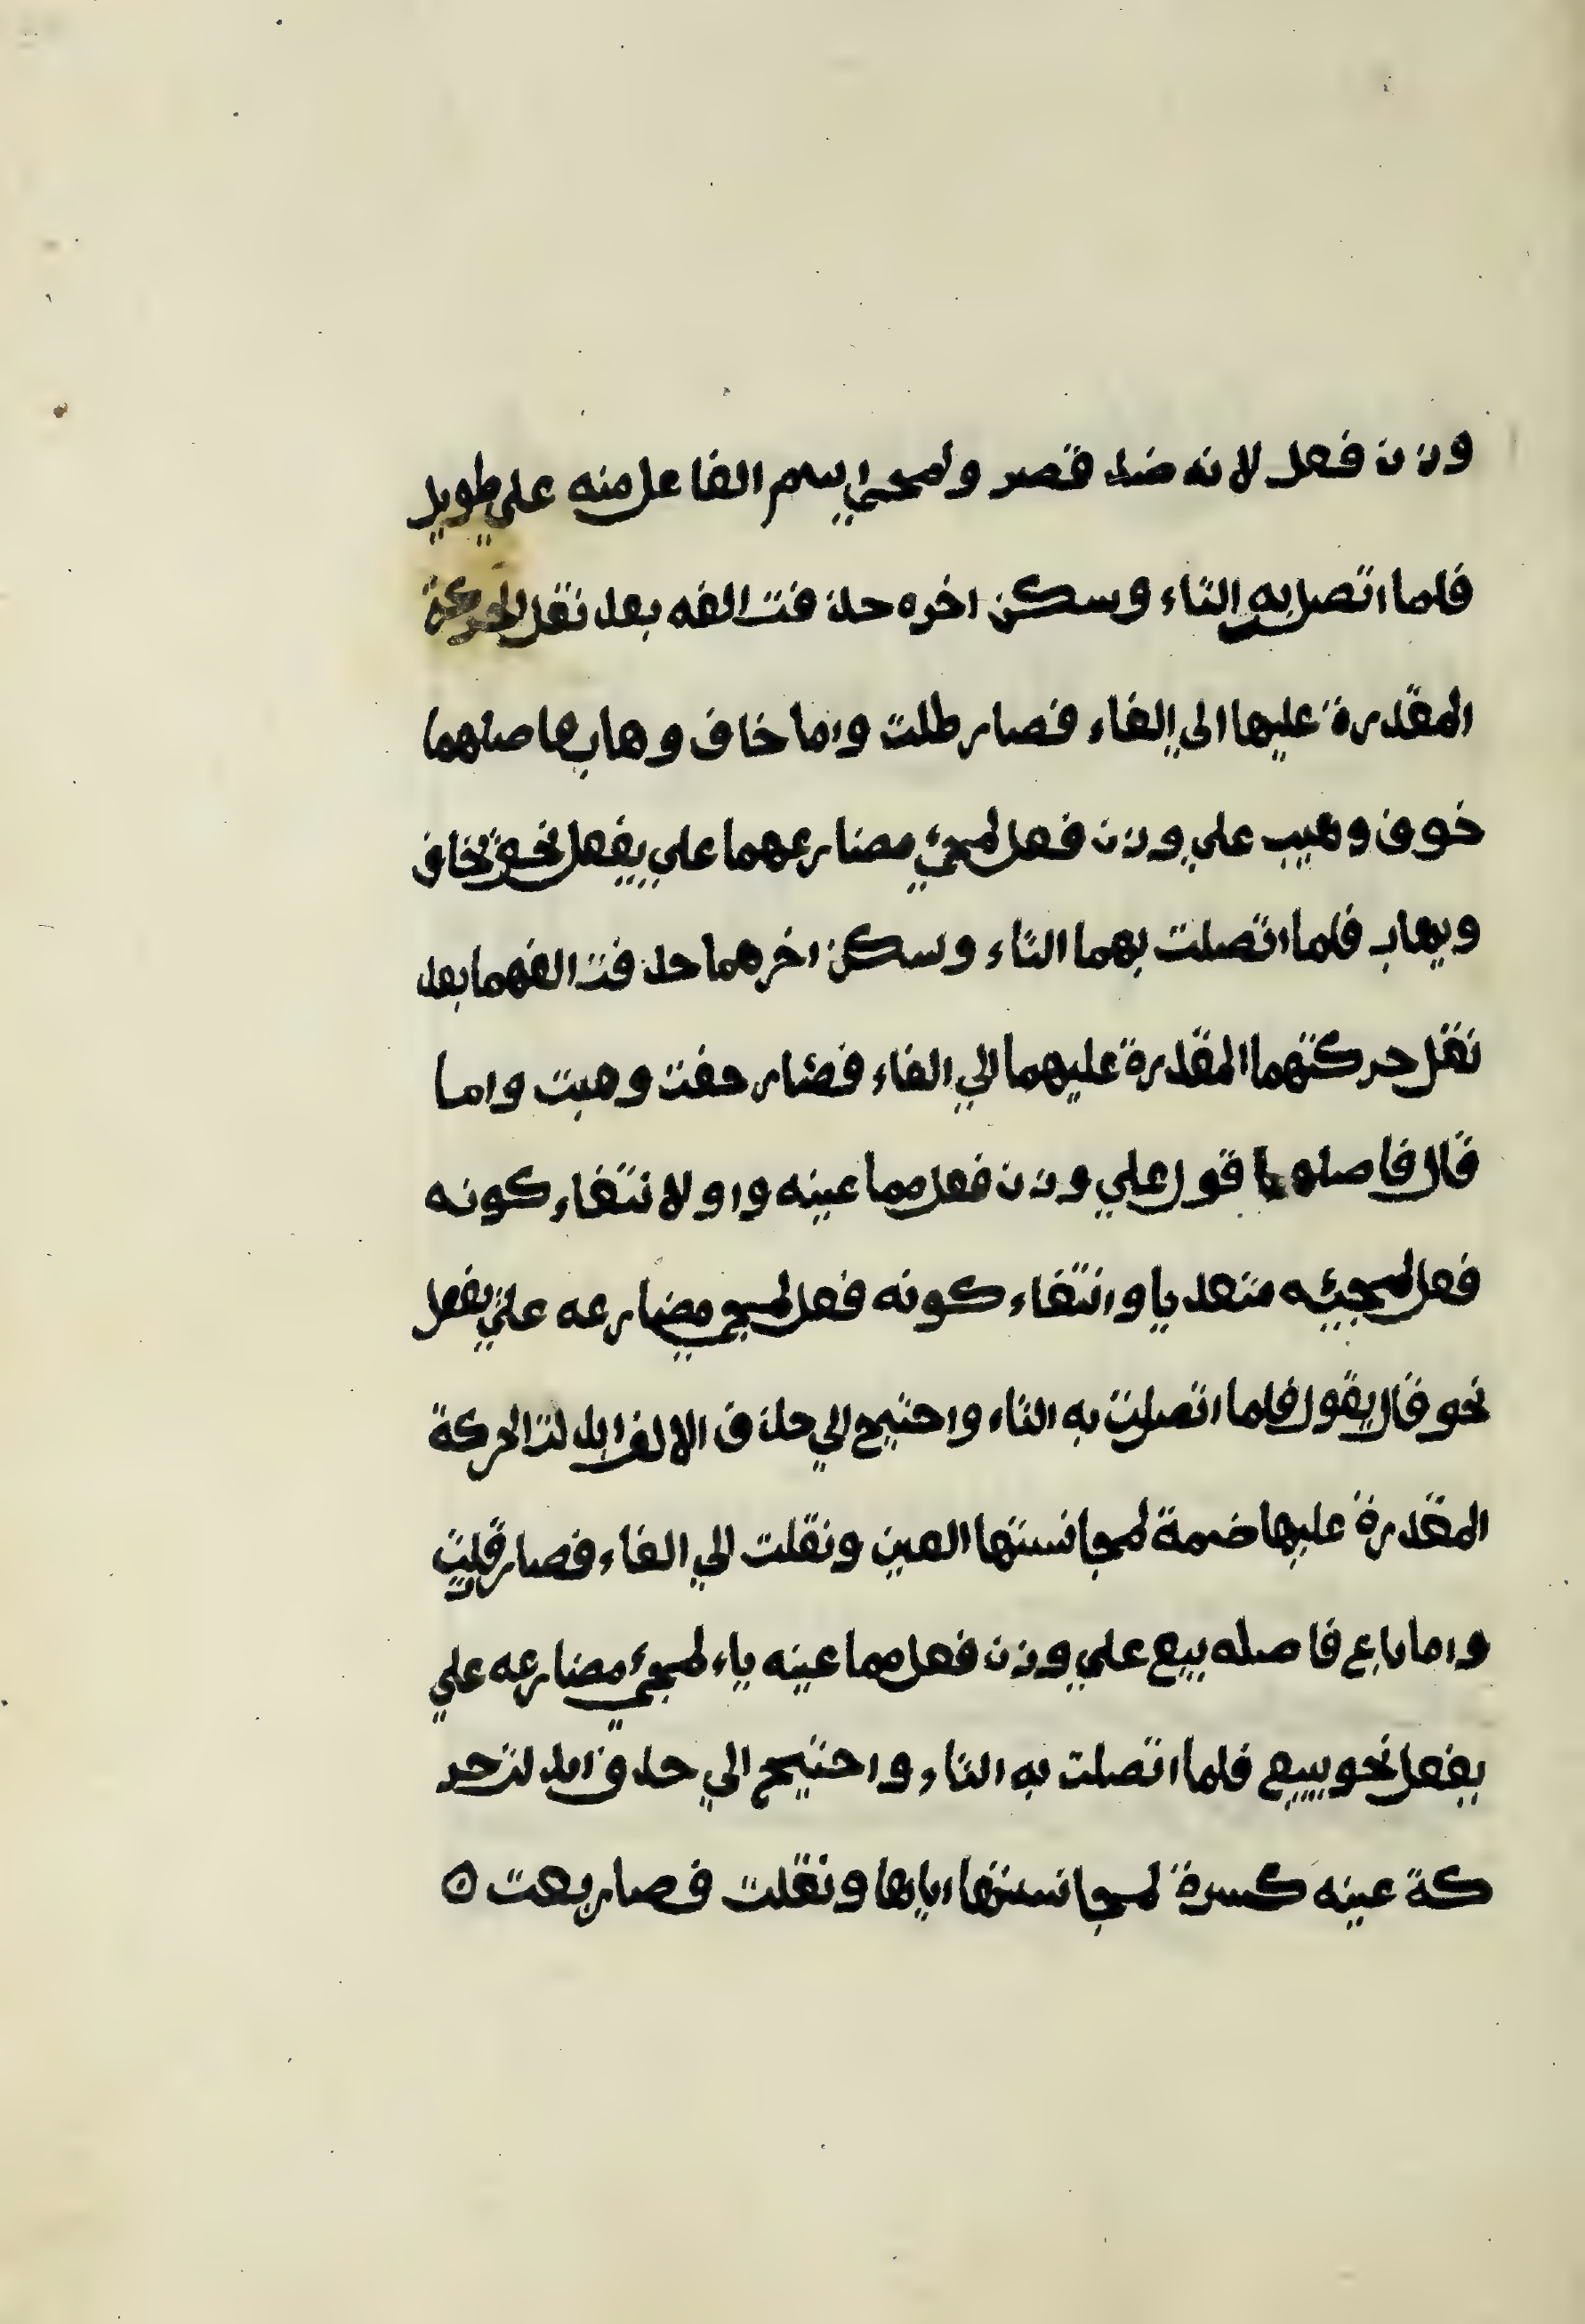 وزن فعل لانه ضد قصر ولمجي اسم الفاعل منه علي طويل
فلما اتصل به التاء وسكن اخره حذفت الفه بعد نقل الحركة
المقدرة عليها الي الفاء فصار طلت واما خاف وهاب فاصلهما
خوف وهيب علي وزن فعل لمجئ مضارعهما علي يفعل نحو يخاف
ويهاب فلما اتصلت بهما التاء وسكن اخرهما حذفت الفهما بعد
نقل حركتهما المقدرة عليهما الي الفاء فصار خفت وهبت واما
قال فاصلها قول علي وزن فعل مما عينه واو لانتفاء كونه
فعل لمجيئه متعديا وانتفاء كونه فعل لمجي مضارعه علي يفعل
نحو قال يقول فلما اتصلت به التاء واحتيج الي حذف الالف ابدلت الحركة
المقدرة عليها ضمة لمجانستها العين ونقلت الي الفاء فصار قلت
واما باع فاصله بيع علي وزن فعل مما عينه ياء لمجئ مضارعه علي
يفعل نحو يبيع فلما اتصلت به التاء واحتيج الي حذف ابدلت حر
كة عينه كسرة لمجانستها اياها ونقلت فصار بعت ه